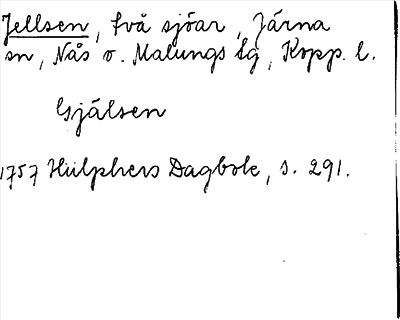 Jellsen, två sjöar, Järna
sn, Nås o. Malungs tg, Kopp. l.
Gjälsen
1757 Hülphers Dagbok, s. 291.